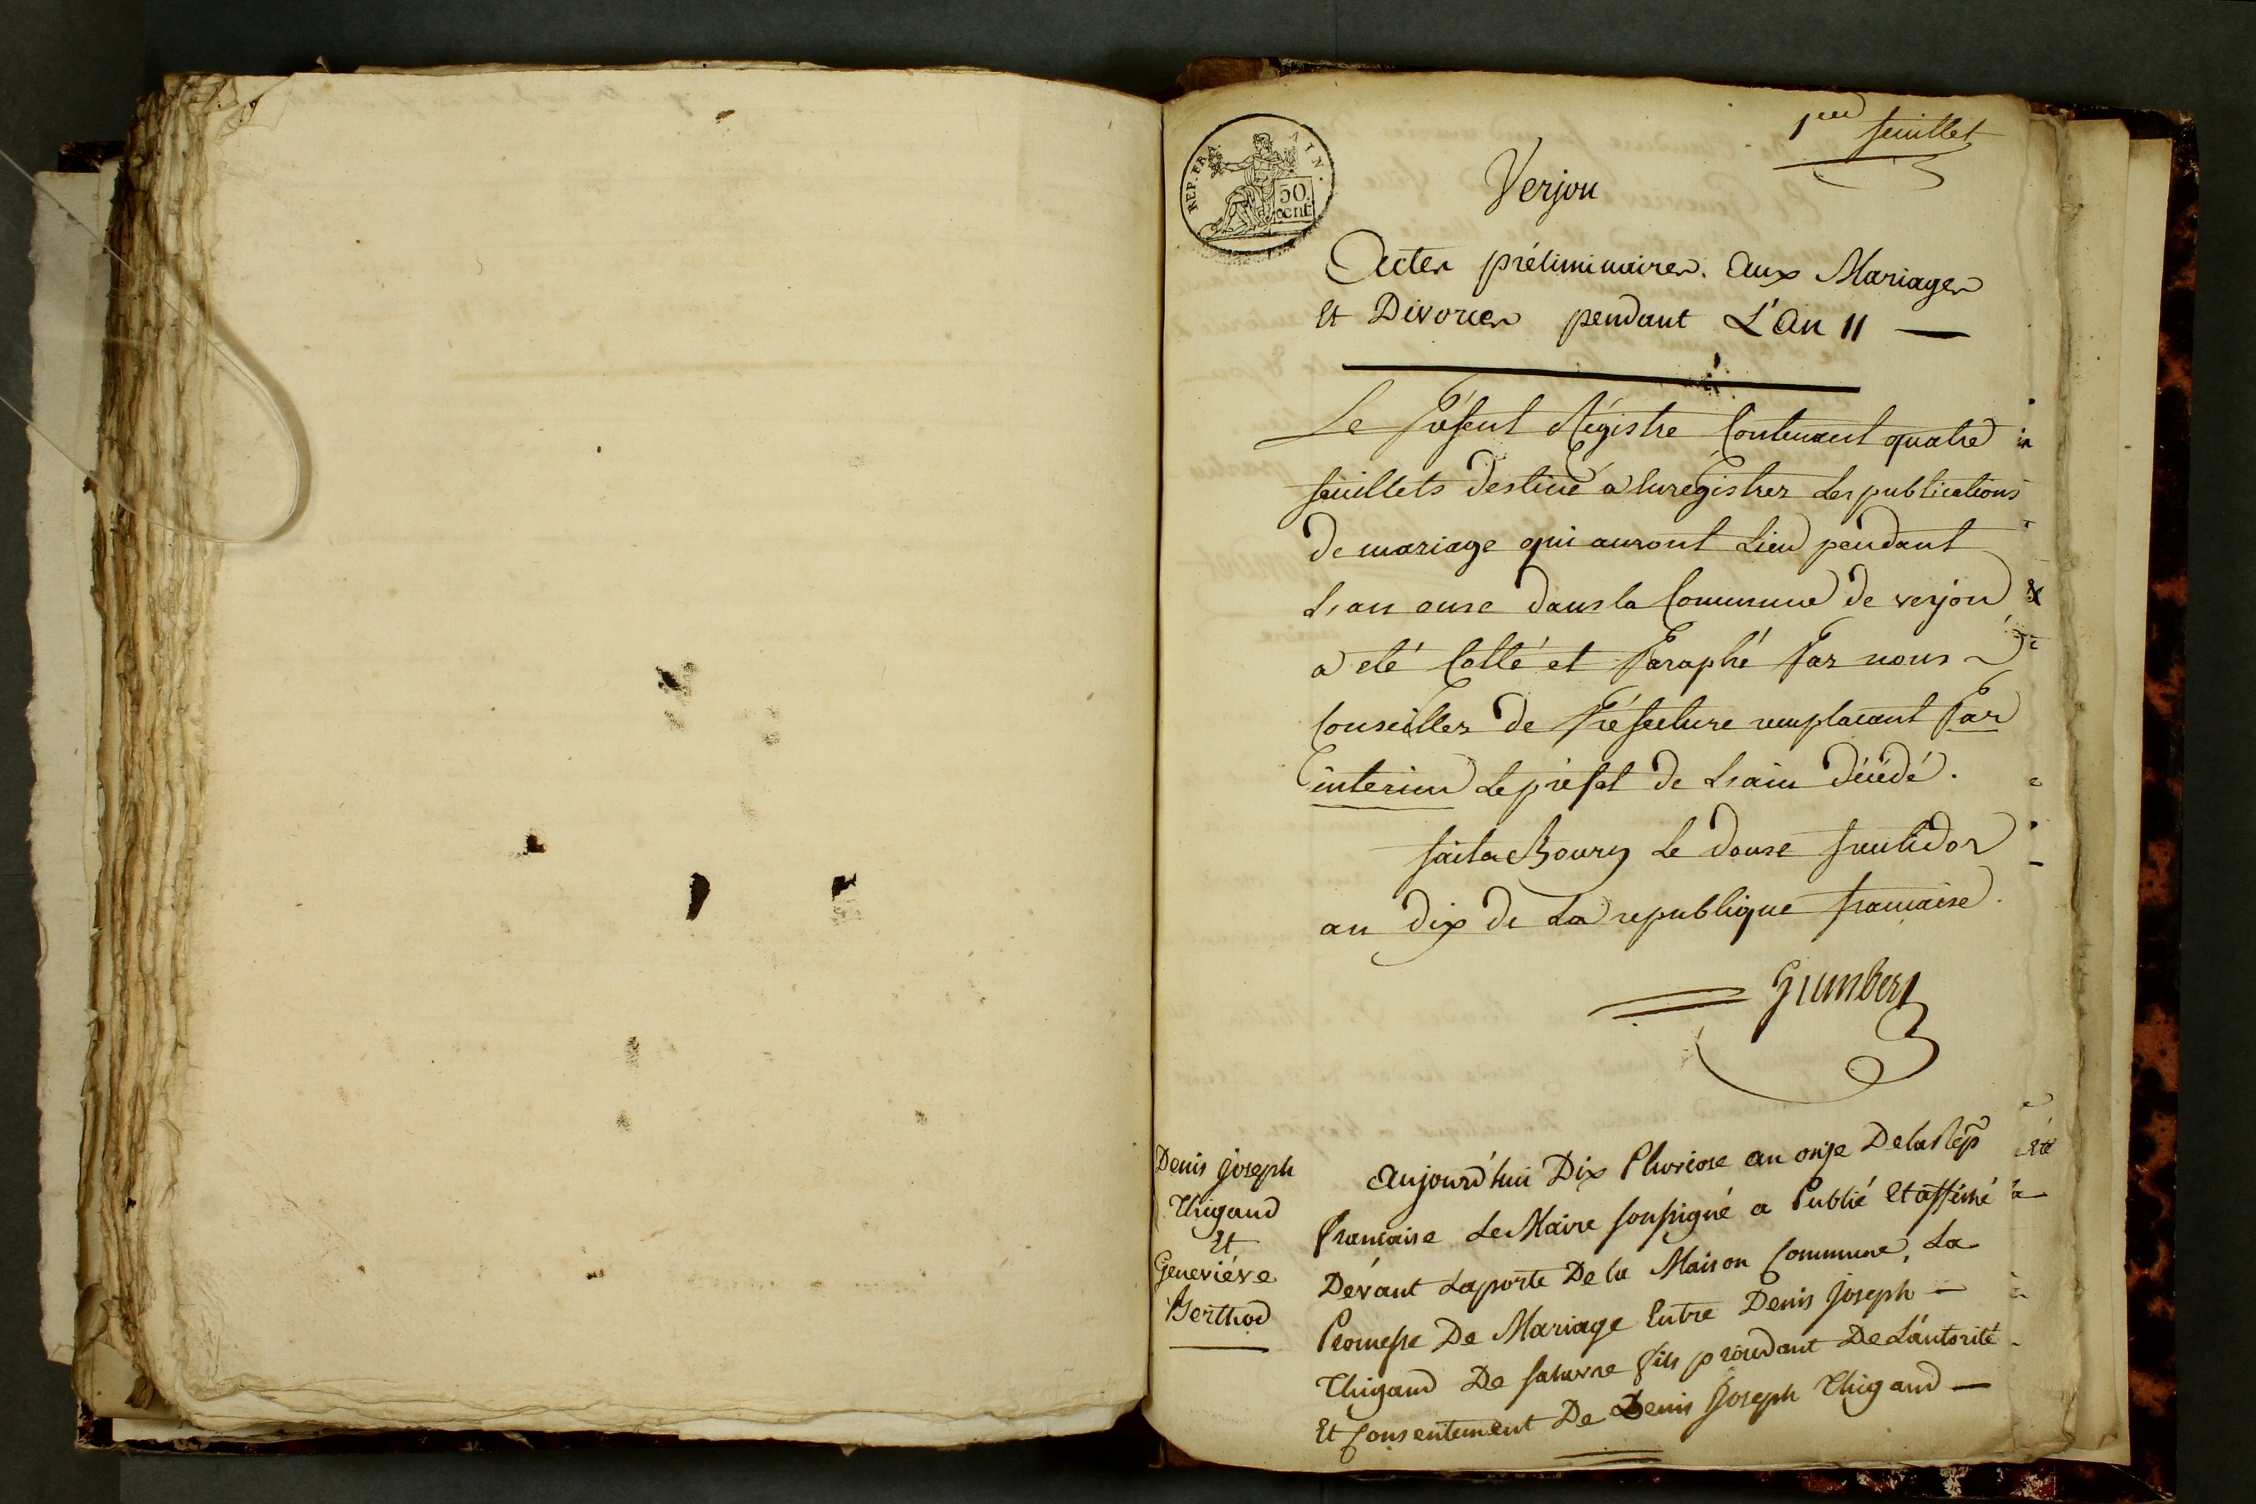 1er feuillet
REP. FRA. IN.
50 cent
Verjon
Actes préliminaires. aux Mariages
Et Divorces pendant L'an 11 —
Le Présent Régistre Contenant quatre
feuillets destiné a Enrégistrer Les publications
de mariage qui auront Lieu pendant
L'an onse dans la Commune de verjon
a eté Cotté et Paraphé Par nous
Conseiller de Préfecture remplacant Par
interim Le préfet de L'ain décédé.
fait a Bourg Le douse fructidor
an dix de La republique francaise.
Denis Joseph
Thigaud
Et
Geneviéve
Berthod
Aujourd'hui Dix Pluviose an onze De la Rép
francaise Le Maire soussigné a Publié Et affiché
Dévant La porte De la Maison Commune, La
Promesse De Mariage Entre Denis Joseph —
Thigaud De fils De L'autorité
Et Consentement De Denis Joseph Thigaud —